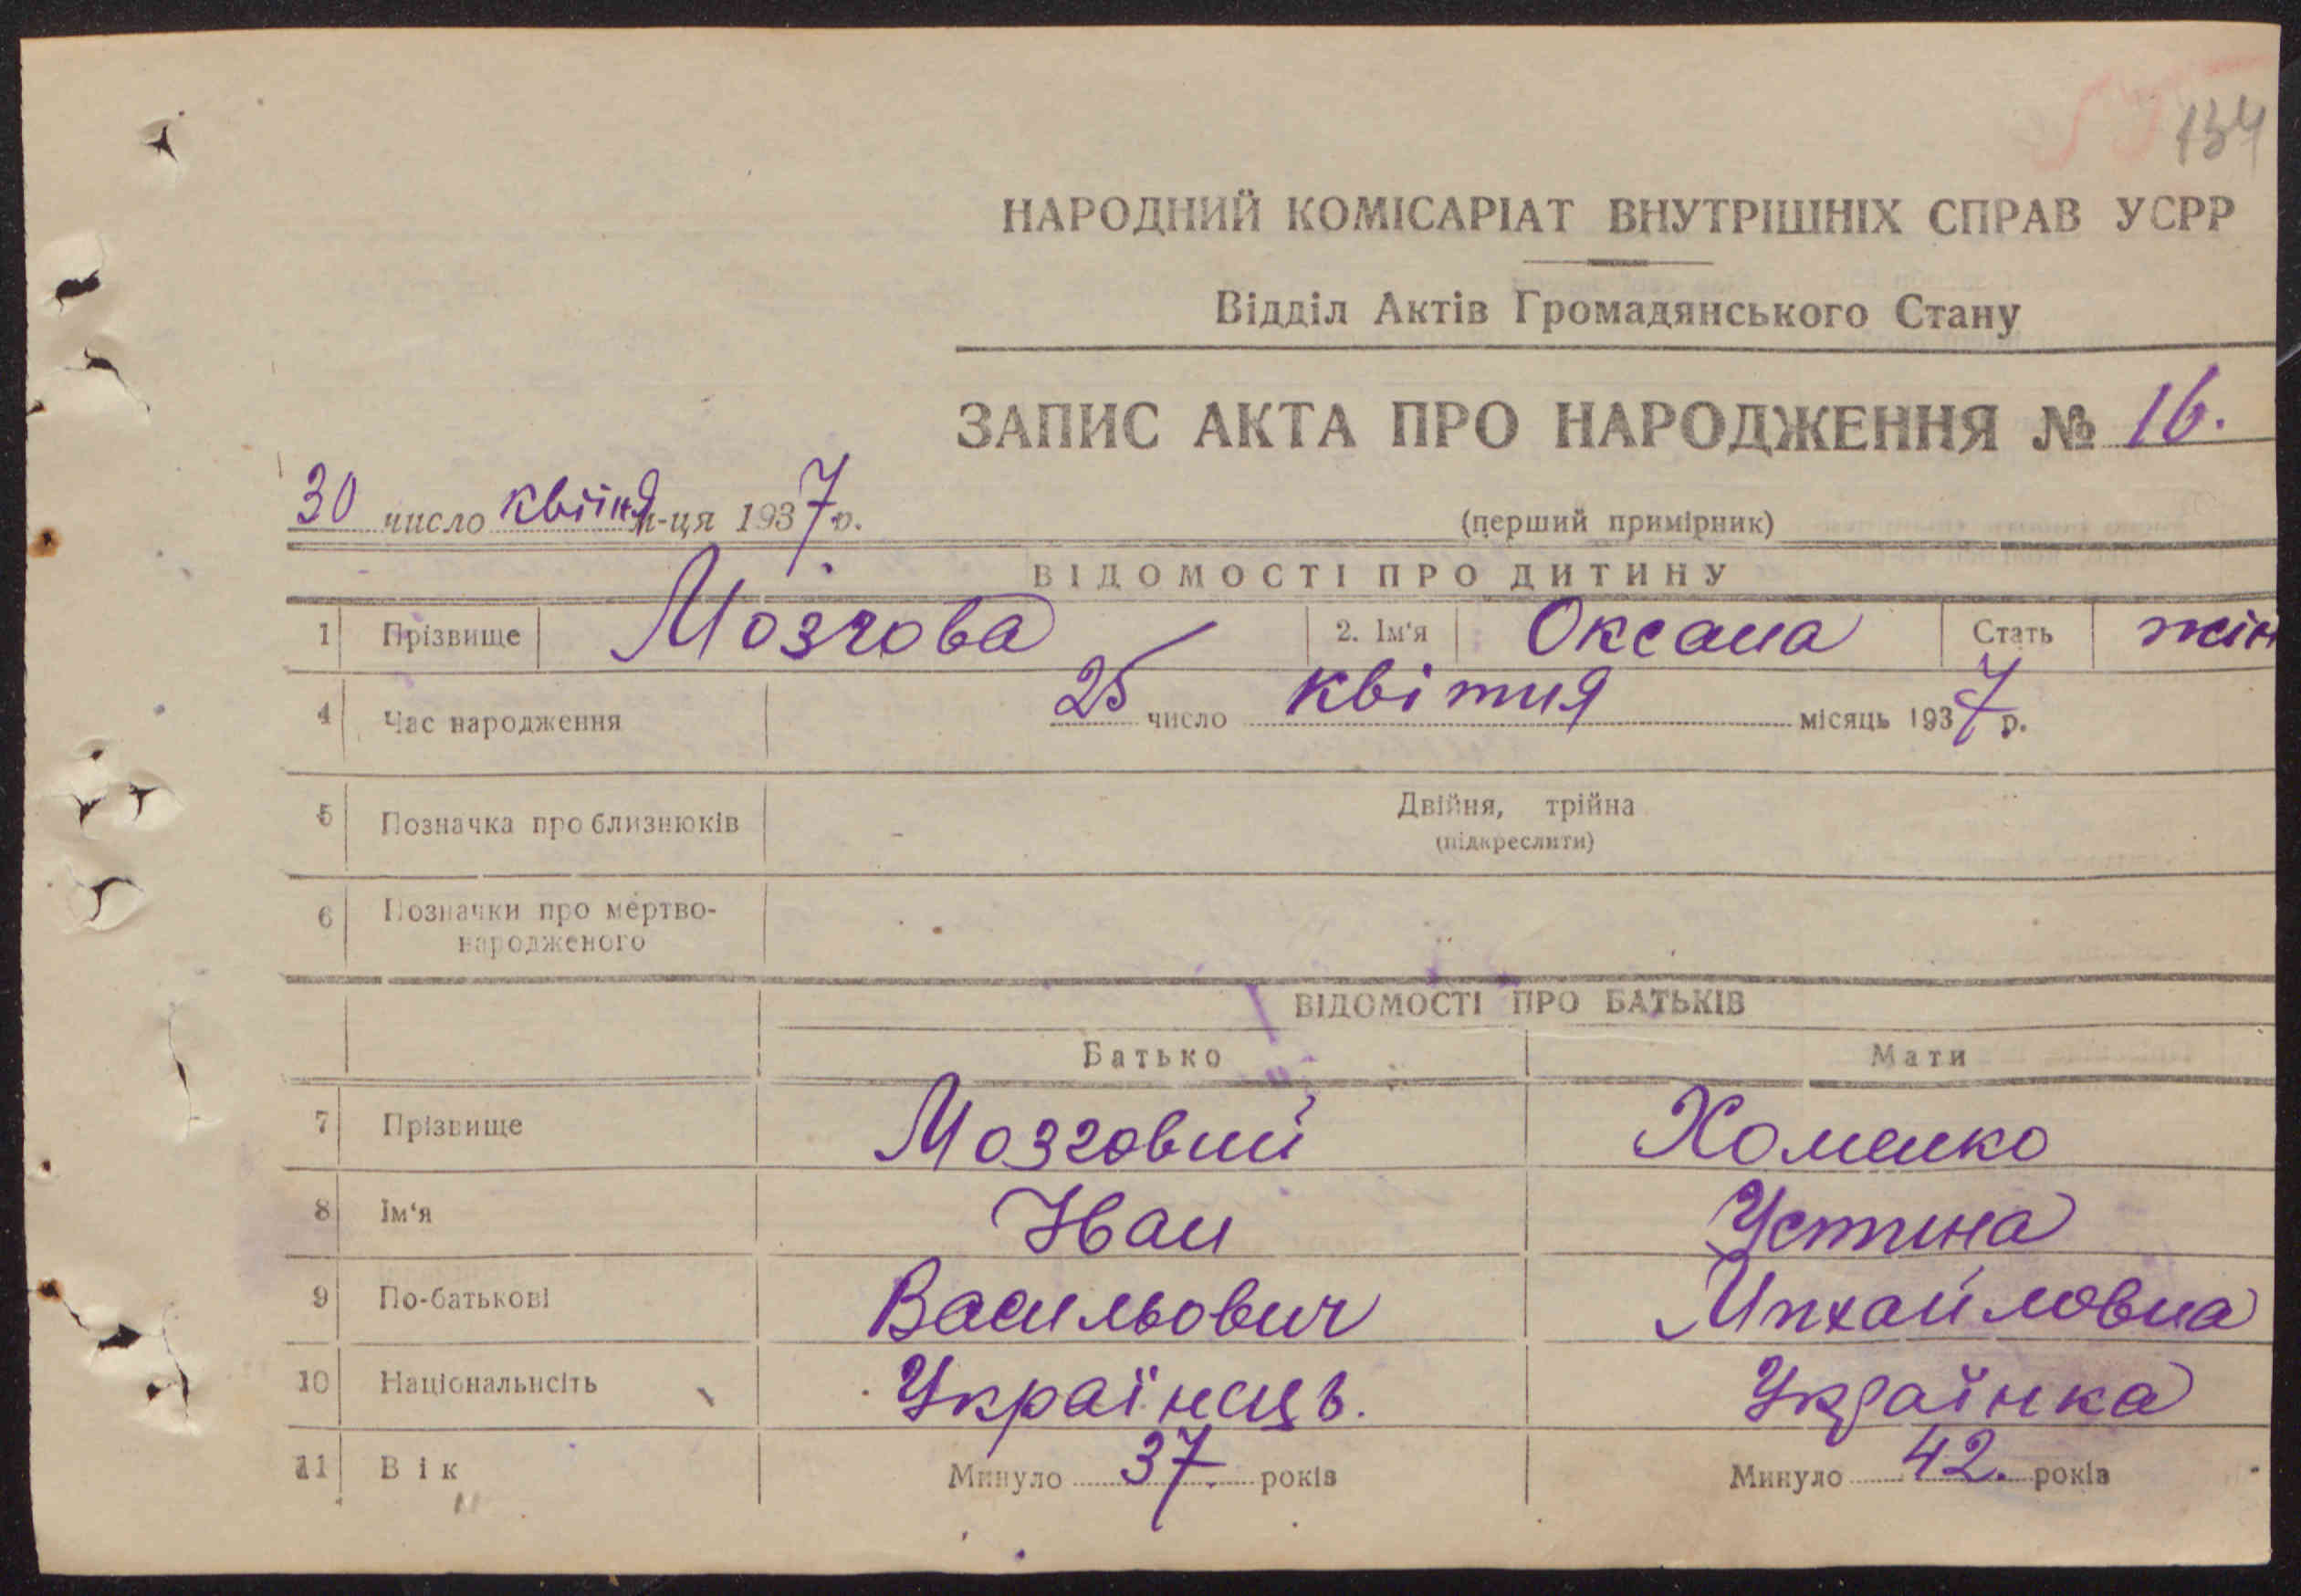 134
НАРОДНИЙ КОМІСАРІАТ ВНУТРІШНІХ СПРАВ УСРР
Відділ Актів Громадянського Стану
ЗАПИС АКТА ПРО НАРОДЖЕННЯ № 16.
30 число квітня м-ця 1937 р.
(перший примірник)
ВІДОМОСТІ ПРО ДИТИНУ
1 Прізвище Мозгова 2. Ім'я Оксана Стать жін
4 Час народження 25 число квітня місяць 1937 р.
5 Позначка про близнюків Двійня, трійна
(підкреслити)
6 Позначки про мертво-
народженого
ВІДОМОСТІ ПРО БАТЬКІВ
Батько Мати
7 Прізвище Мозговий Хоменко
8 Ім'я Іван Устина
9 По-батькові Васильович Михайловна
10 Національнсіть Українець. Українка
11 Вік Минуло 37. років Минуло 42. років